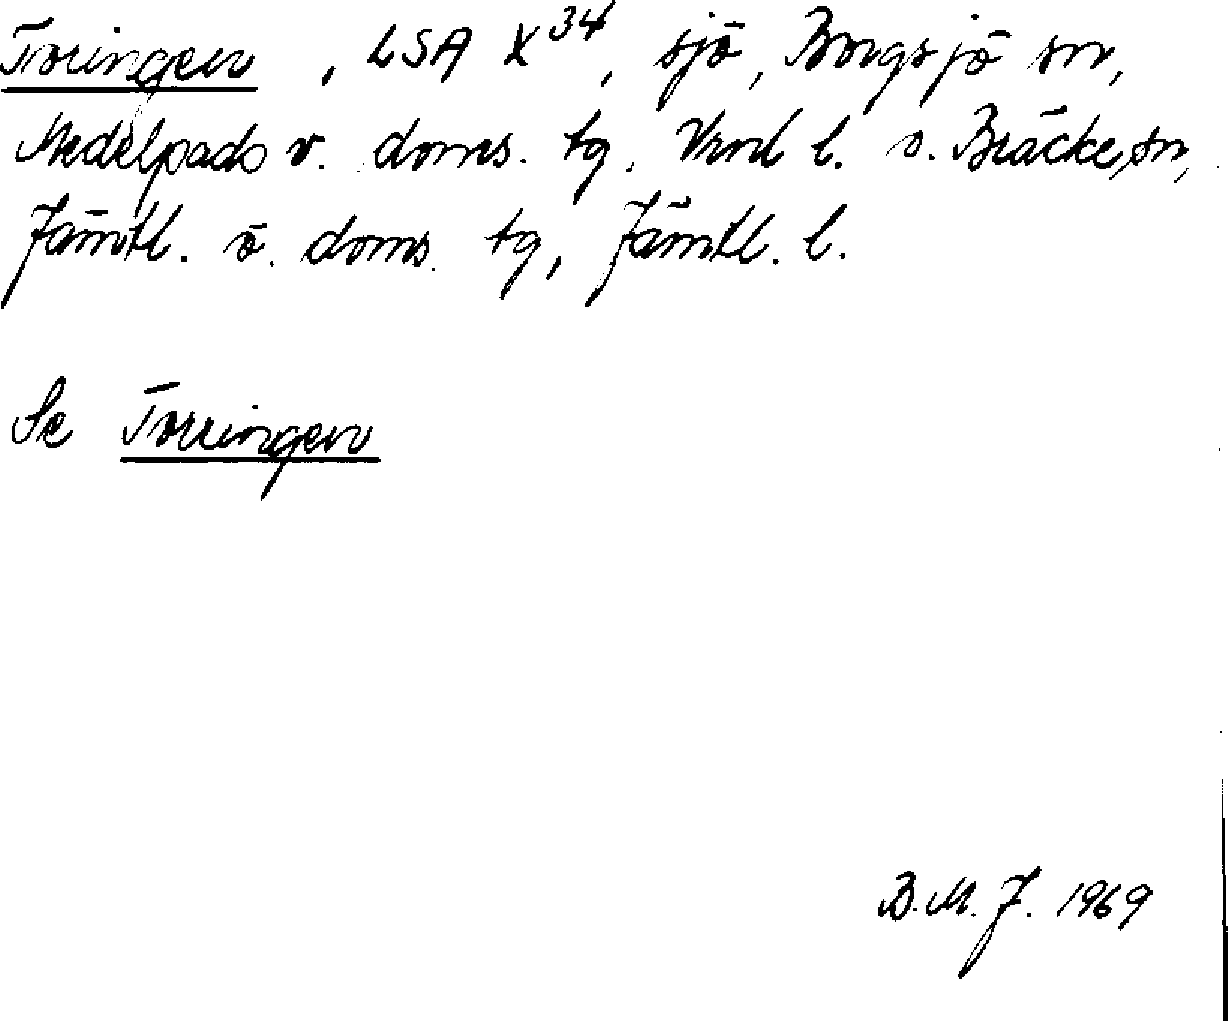 Toringen , LSA X34, sjö, Borgsjö sn,
Medelpads v. doms. tg. Vnrl l. o. Bräcke sn,
Jämtl. ö. doms. tg, Jämtl. l.
Se Torringen
B.M.J. 1969